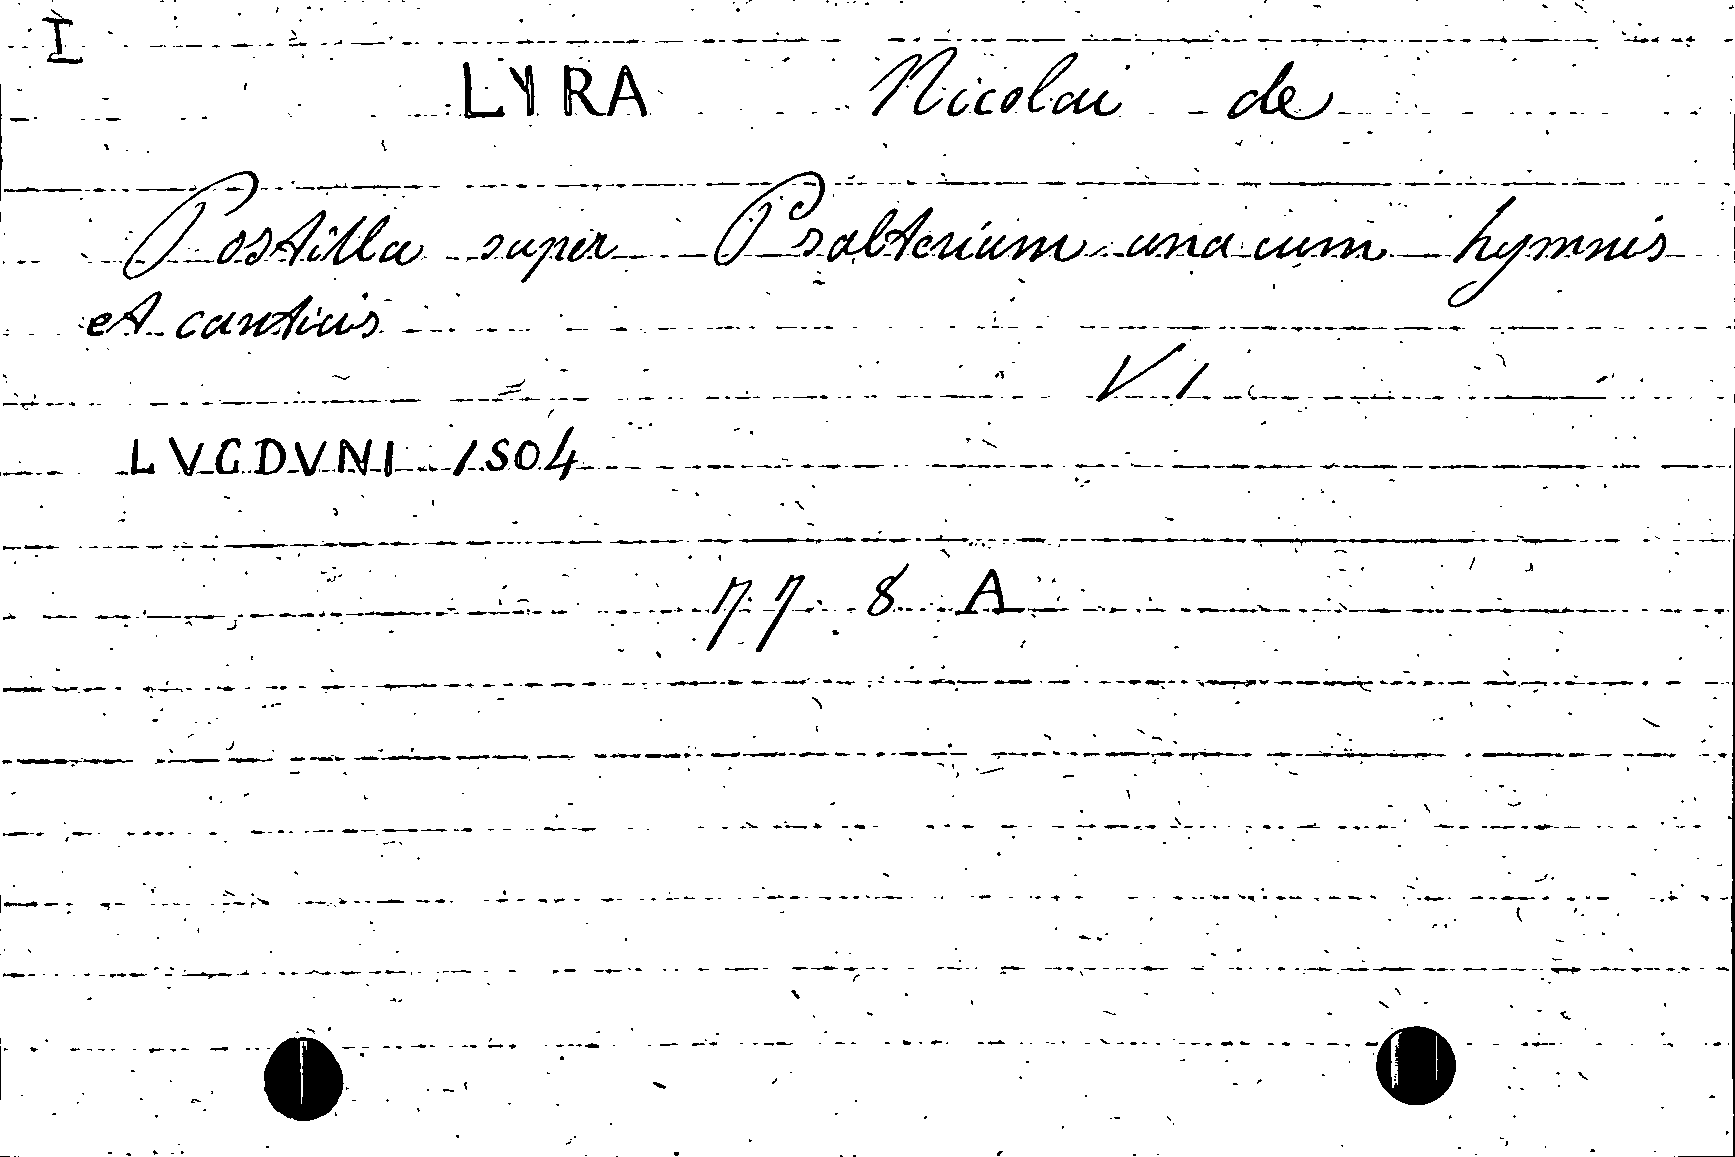 I
LYRA Nicolai de
Postilla super Psalterium una cum hymnis
et canticis
V 1
LVGDVNI 1504
77 8 A